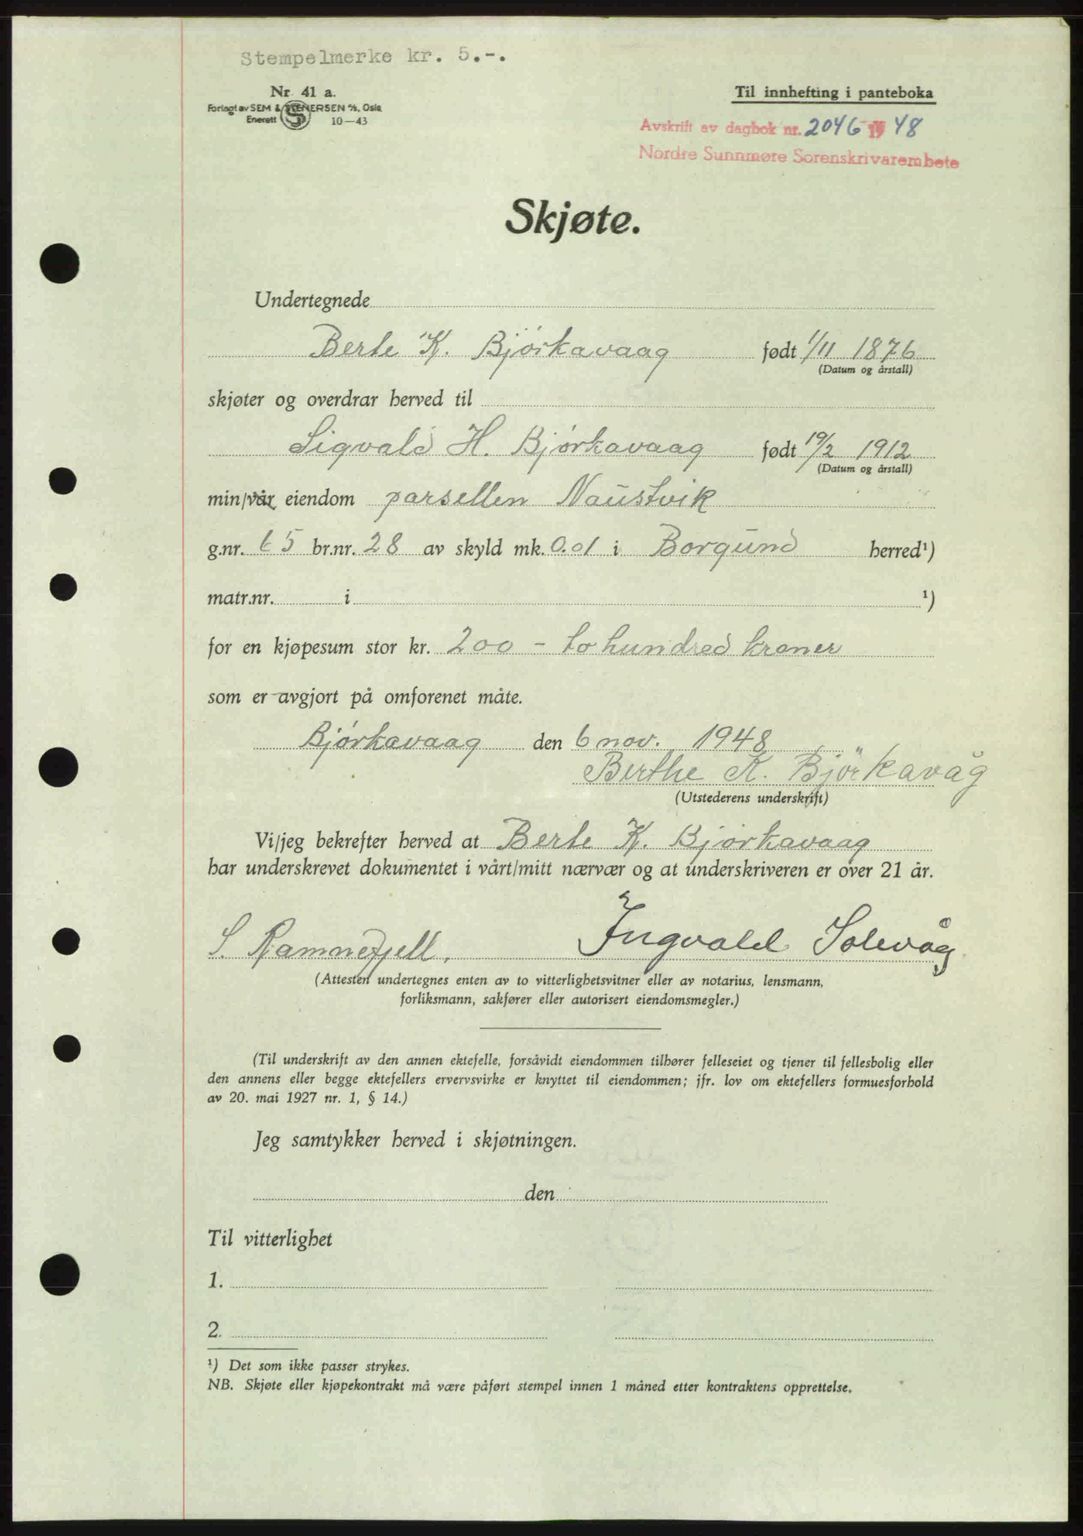 Stempelmerke kr. 5.-.
Nr. 41 a.
Forlagt av SEM & STENERSEN A/S, Oslo
Enerett 10-43
Til innhefting i panteboka
Avskrift av dagbok nr. 2046 19 48
Nordre Sunnmøre Sorenskrivarembete
Skjøte.
Undertegnede
Berte K. Bjørkavaag født 1/11 1876
(Datum og årstall)
skjøter og overdrar herved til
Sigvald H. Bjørkavaag født 19/2 1912
(Datum og årstall)
min/vår eiendom parsellen Naustvik
g.nr. 65 br.nr. 28 av skyld mk. 0.01 i Borgund herred¹)
matr.nr. i ¹)
for en kjøpesum stor kr. 200 - to hundred kroner
som er avgjort på omforenet måte.
Bjørkavaag den 6 nov. 1948
Berthe K. Björkavåg
(Utstederens underskrift)
Vi/jeg bekrefter herved at Berte K. Bjørkavaag
har underskrevet dokumentet i vårt/mitt nærvær og at underskriveren er over 21 år.
S. Ramnefjell. Ingvald Solevåg
(Attesten undertegnes enten av to vitterlighetsvitner eller av notarius, lensmann,
forliksmann, sakfører eller autorisert eiendomsmegler.)
(Til underskrift av den annen ektefelle, forsåvidt eiendommen tilhører felleseiet og tjener til fellesbolig eller
den annens eller begge ektefellers ervervsvirke er knyttet til eiendommen; jfr. lov om ektefellers formuesforhold
av 20. mai 1927 nr. 1, § 14.)
Jeg samtykker herved i skjøtningen.
den
Til vitterlighet
1.
2.
¹) Det som ikke passer strykes.
NB. Skjøte eller kjøpekontrakt må være påført stempel innen 1 måned etter kontraktens opprettelse.